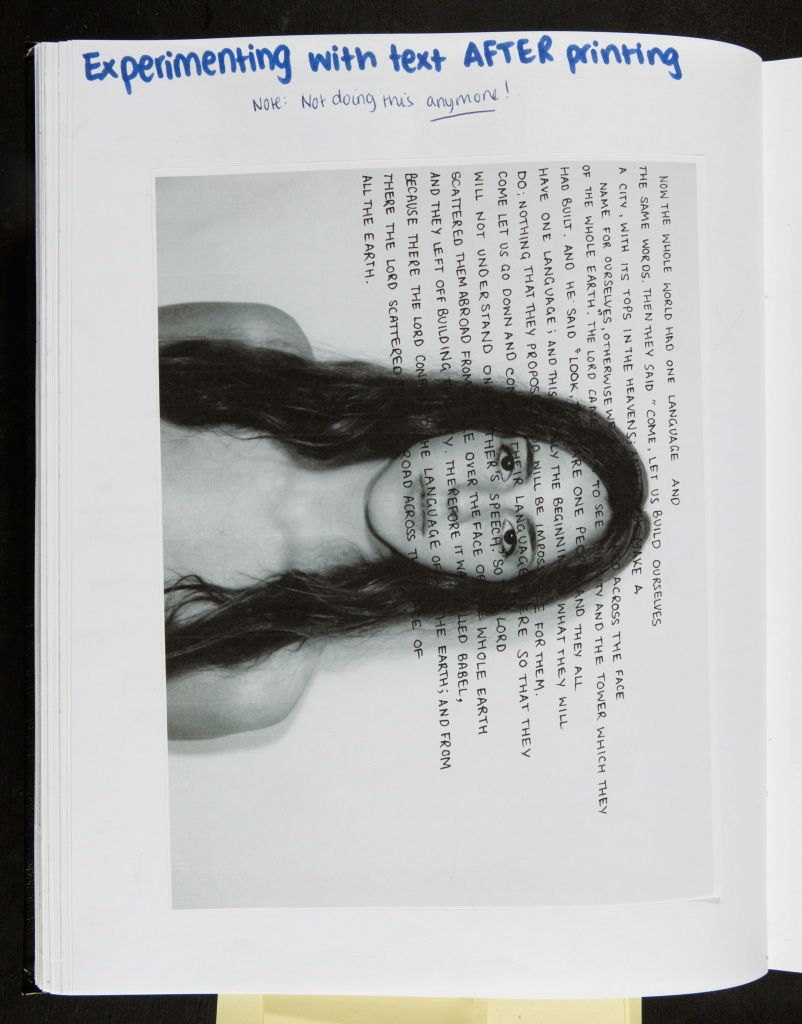 Experimenting with text AFTER printing
Note: Not doing this anymore!
NOW THE WHOLE WORLD HAD ONE LANGUAGE AND
THE SAME WORDS. THEN THEY SAID "COME, LET US BUILD OURSELVES
A CITY, WITH ITS TOPS IN THE HEAVENS; MAKE A
NAME FOR OURSELVES, OTHERWISE WE ACROSS THE FACE
OF THE WHOLE EARTH. THE LORD TO SEE AND THE TOWER WHICH THEY
HAD BUILT. AND HE SAID "LOOK, ARE ONE AND THEY ALL
HAVE ONE LANGUAGE; AND THIS THE WHAT THEY WILL
DO; NOTHING THAT THEY WILL BE FOR THEM.
COME LET US GO DOWN AND THEIR LANGUAGE SO THAT THEY
WILL NOT UNDERSTAND SPEECH." SO LORD
SCATTERED THEM ABROAD FROM OVER THE FACE WHOLE EARTH
AND THEY LEFT OFF BUILDING THEREFORE IT BABEL,
BECAUSE THERE THE LORD THE LANGUAGE THE EARTH; AND FROM
THERE THE LORD SCATTERED ACROSS OF
ALL THE EARTH.